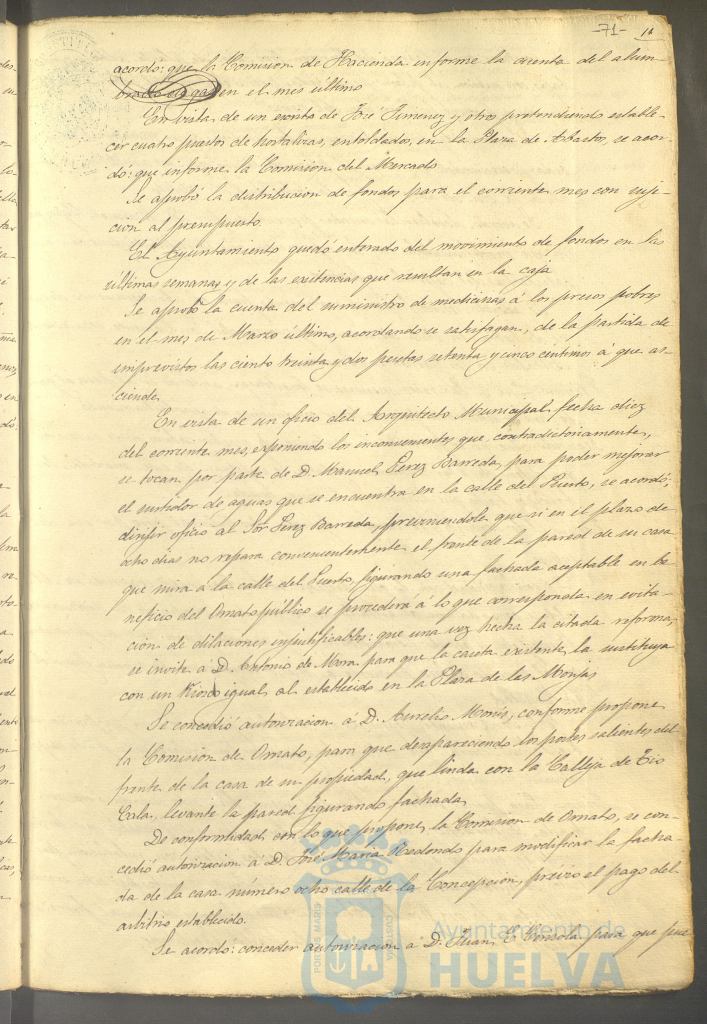 -71- 
acordó: que la Comision de Hacienda informe la cuenta del alum-
brado de gas en el mes último
En vista de un escrito de José Jimenez y otros pretendiendo estable-
cer cuatro puestos de hortalizas, entoldados, en la Plaza de Abastos, se acor-
dó: que informe la Comision del Mercado
Se aprobó la distribucion de fondos para el corriente mes con suje-
cion al presupuesto.
El Ayuntamiento quedó enterado del movimiento de fondos en las
últimas semanas y de las existencias que resultan en la caja
Se aprobó la cuenta del suministro de medicinas á los presos pobres
en el mes de Marzo último, acordando se satisfagan, de la partida de
imprevistos las ciento treinta y dos pesetas setenta y cinco centimos á que as-
ciende.
En vista de un oficio del Arquitecto Municipal, fecha diez
del corriente mes, exponiendo los inconvenientes que contradictoriamente,
se tocan por parte de D. Manuel Perez Barreda, para poder mejorar
el surtidor de aguas que se encuentra en la calle del Puerto, se acordó;
dirigir oficio al Sor Perez Barreda, previniendole que si en el plazo de
ocho dias no repara convenientemente el frente de la pared de su casa
que mira á la calle del Puerto, figurando una fachada aceptable en be-
neficio del Ornato público se procederá á lo que corresponda en evita-
cion de dilaciones injustificables: que una vez hecha la citada reforma,
se invite á D. Antonio de Mora para que la caseta existente, la sustituya
con un Kiosco igual al establecido en la Plaza de las Monjas
Se concedió autorizacion á D. Aurelio Monis, conforme propone
la Comision de Ornato, para que desapareciendo los postes salientes del
frente de la casa de su propiedad, que linda con la Calleja de Tio
Cala, levante la pared figurando fachada
De conformidad con lo que propone la Comision de Ornato, se con-
cedió autorizacion á D. José Maria Redondo para modificar la facha
da de la casa número ocho calle de la Concepcion, prévio el pago del
arbitrio establecido.
Se acordó: conceder autorizacion á D. Juan C. para que pue
PORTUS MARIS
CUSTODIA
Ayuntamiento de
HUELVA